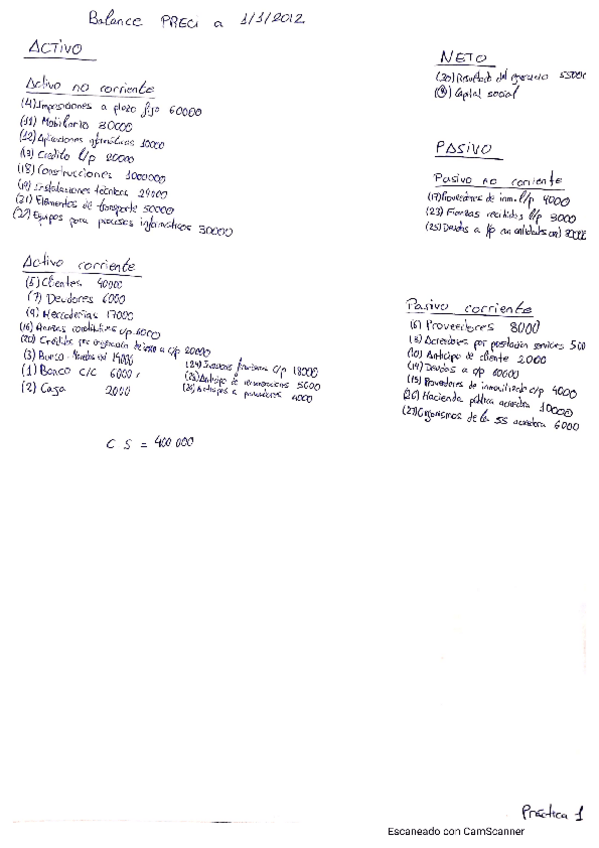 Balance PRECI a 1/1/2012
ACTIVO
Activo no corriente
(4) Imposiciones a plazo fijo 60000
(11) Mobiliario 30000
(12) Aplicaciones informáticas 10000
(13) Crédito l/p 20000
(18) Construcciones 1000000
(19) Instalaciones técnicas 24000
(21) Elementos de transporte 50000
(22) Equipos para procesos informáticos 30000
Activo corriente
(5) Clientes 40000
(7) Deudores 6000
(9) Mercaderías 17000
(16) c/p 6000
(20) Créditos por enajenación de c/p 20000
(3) Banco
(1) Banco c/c 6000
(2) Caja 2000
(24) Inversiones financieras c/p 18000
(25) Anticipo de remuneraciones 5000
(26) Anticipos a proveedores 4000
C S = 400 000
NETO
Resultado del ejercicio
Capital social
PASIVO
Pasivo no corriente
(17) Proveedores de inm. l/p 4000
(23) Fianzas recibidas l/p 3000
(25) Deudas a l/p
Pasivo corriente
(6) Proveedores 8000
(8) Acreedores por prestación servicios 500
(10) Anticipo de cliente 2000
(14) Deudas a c/p 60000
(15) Proveedores de inmovilizado c/p 4000
(26) Hacienda pública acreedora 10000
(27) Organismos de la SS acreedora 6000
Práctica 1
Escaneado con CamScanner